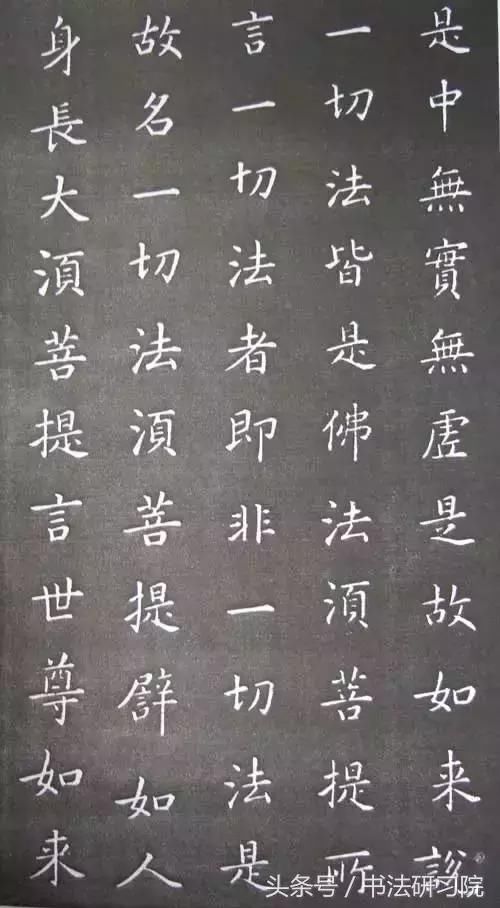 是中無實無虛是故如来說
一切法皆是佛法須菩提所
言一切法者即非一切法是
故名一切法須菩提譬如人
身長大須菩提言世尊如来
头条号/书法研习院